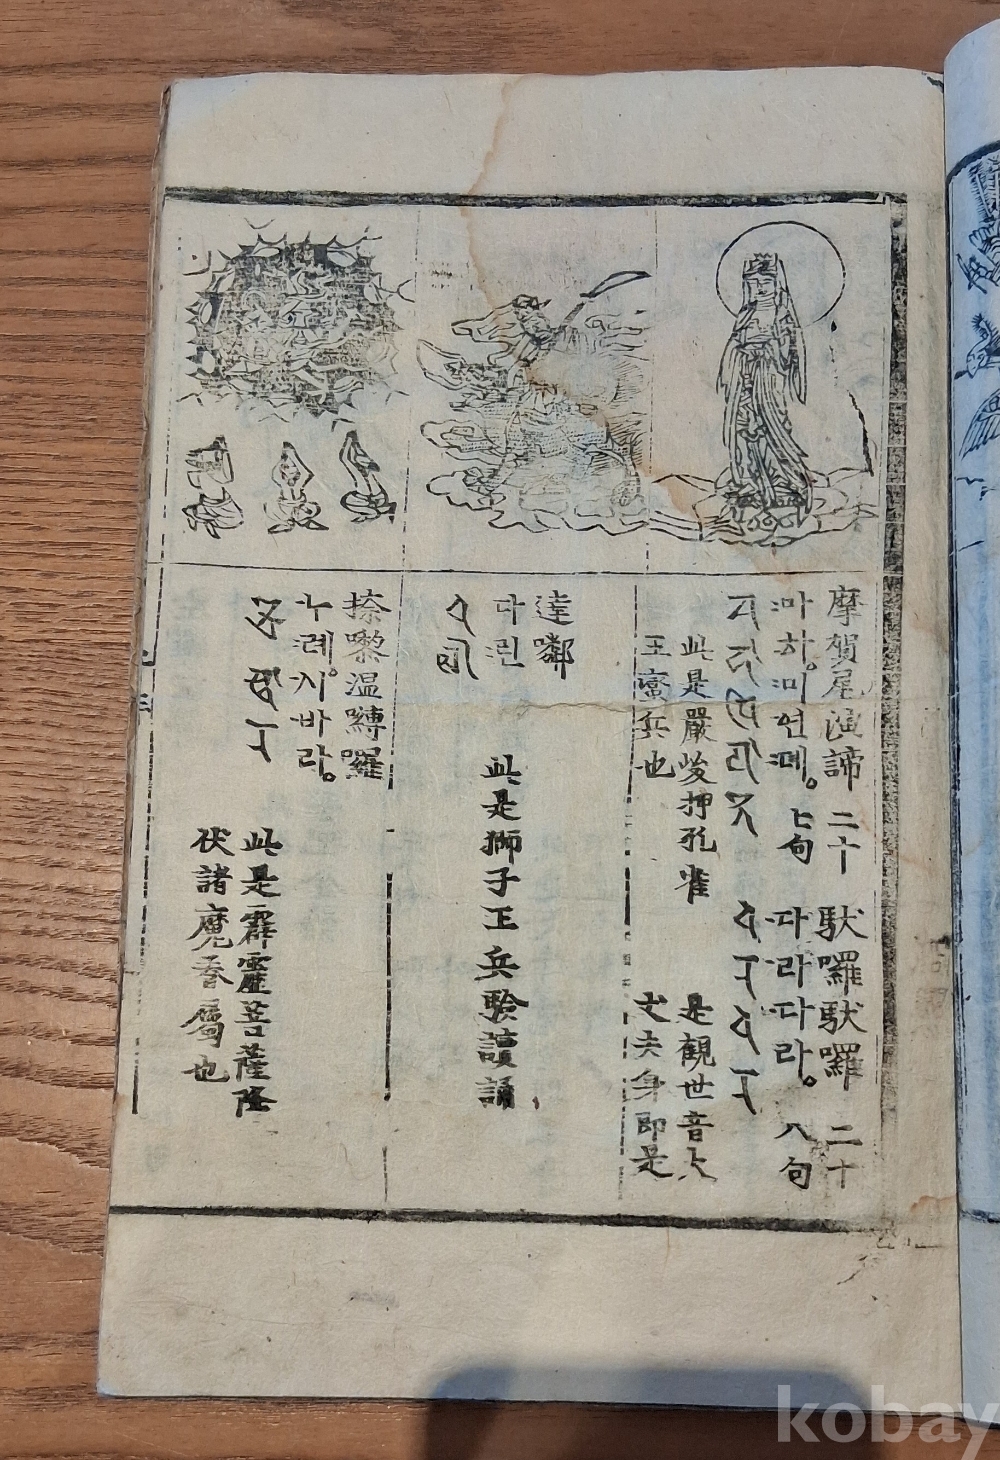 摩賀尾演諦 二十 馱囉馱囉 二十
마하。미연뎨。 七句 다라다라。 八句
此是嚴峻押孔雀
王蠻兵也
是觀世音上
丈夫身即是
達㘁
다린
此是獅子王兵驗讀誦
捺㘑溫嚩囉
누례。시바라。
此是霹靂菩薩降
伏諸魔眷屬也
kobay